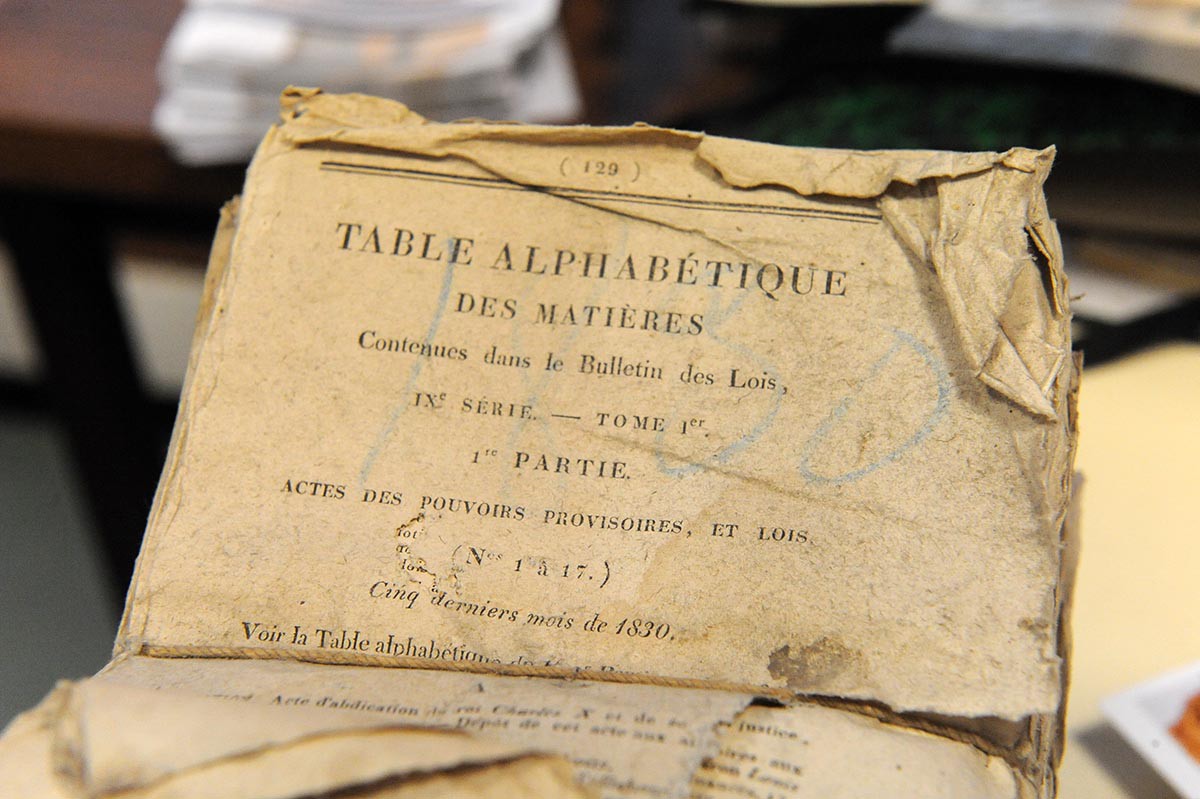 ( 129 )
TABLE ALPHABÉTIQUE
DES MATIÈRES
Contenues dans le Bulletin des Lois,
IXe SÉRIE. — TOME Ier.
1re PARTIE.
ACTES DES POUVOIRS PROVISOIRES, ET LOIS.
(Nos 1 à 17.)
Cinq derniers mois de 1830.
Voir la Table alphabétique
Acte d'abdication roi Charles X et de justice,
Dépôt de cet acte aux
aux